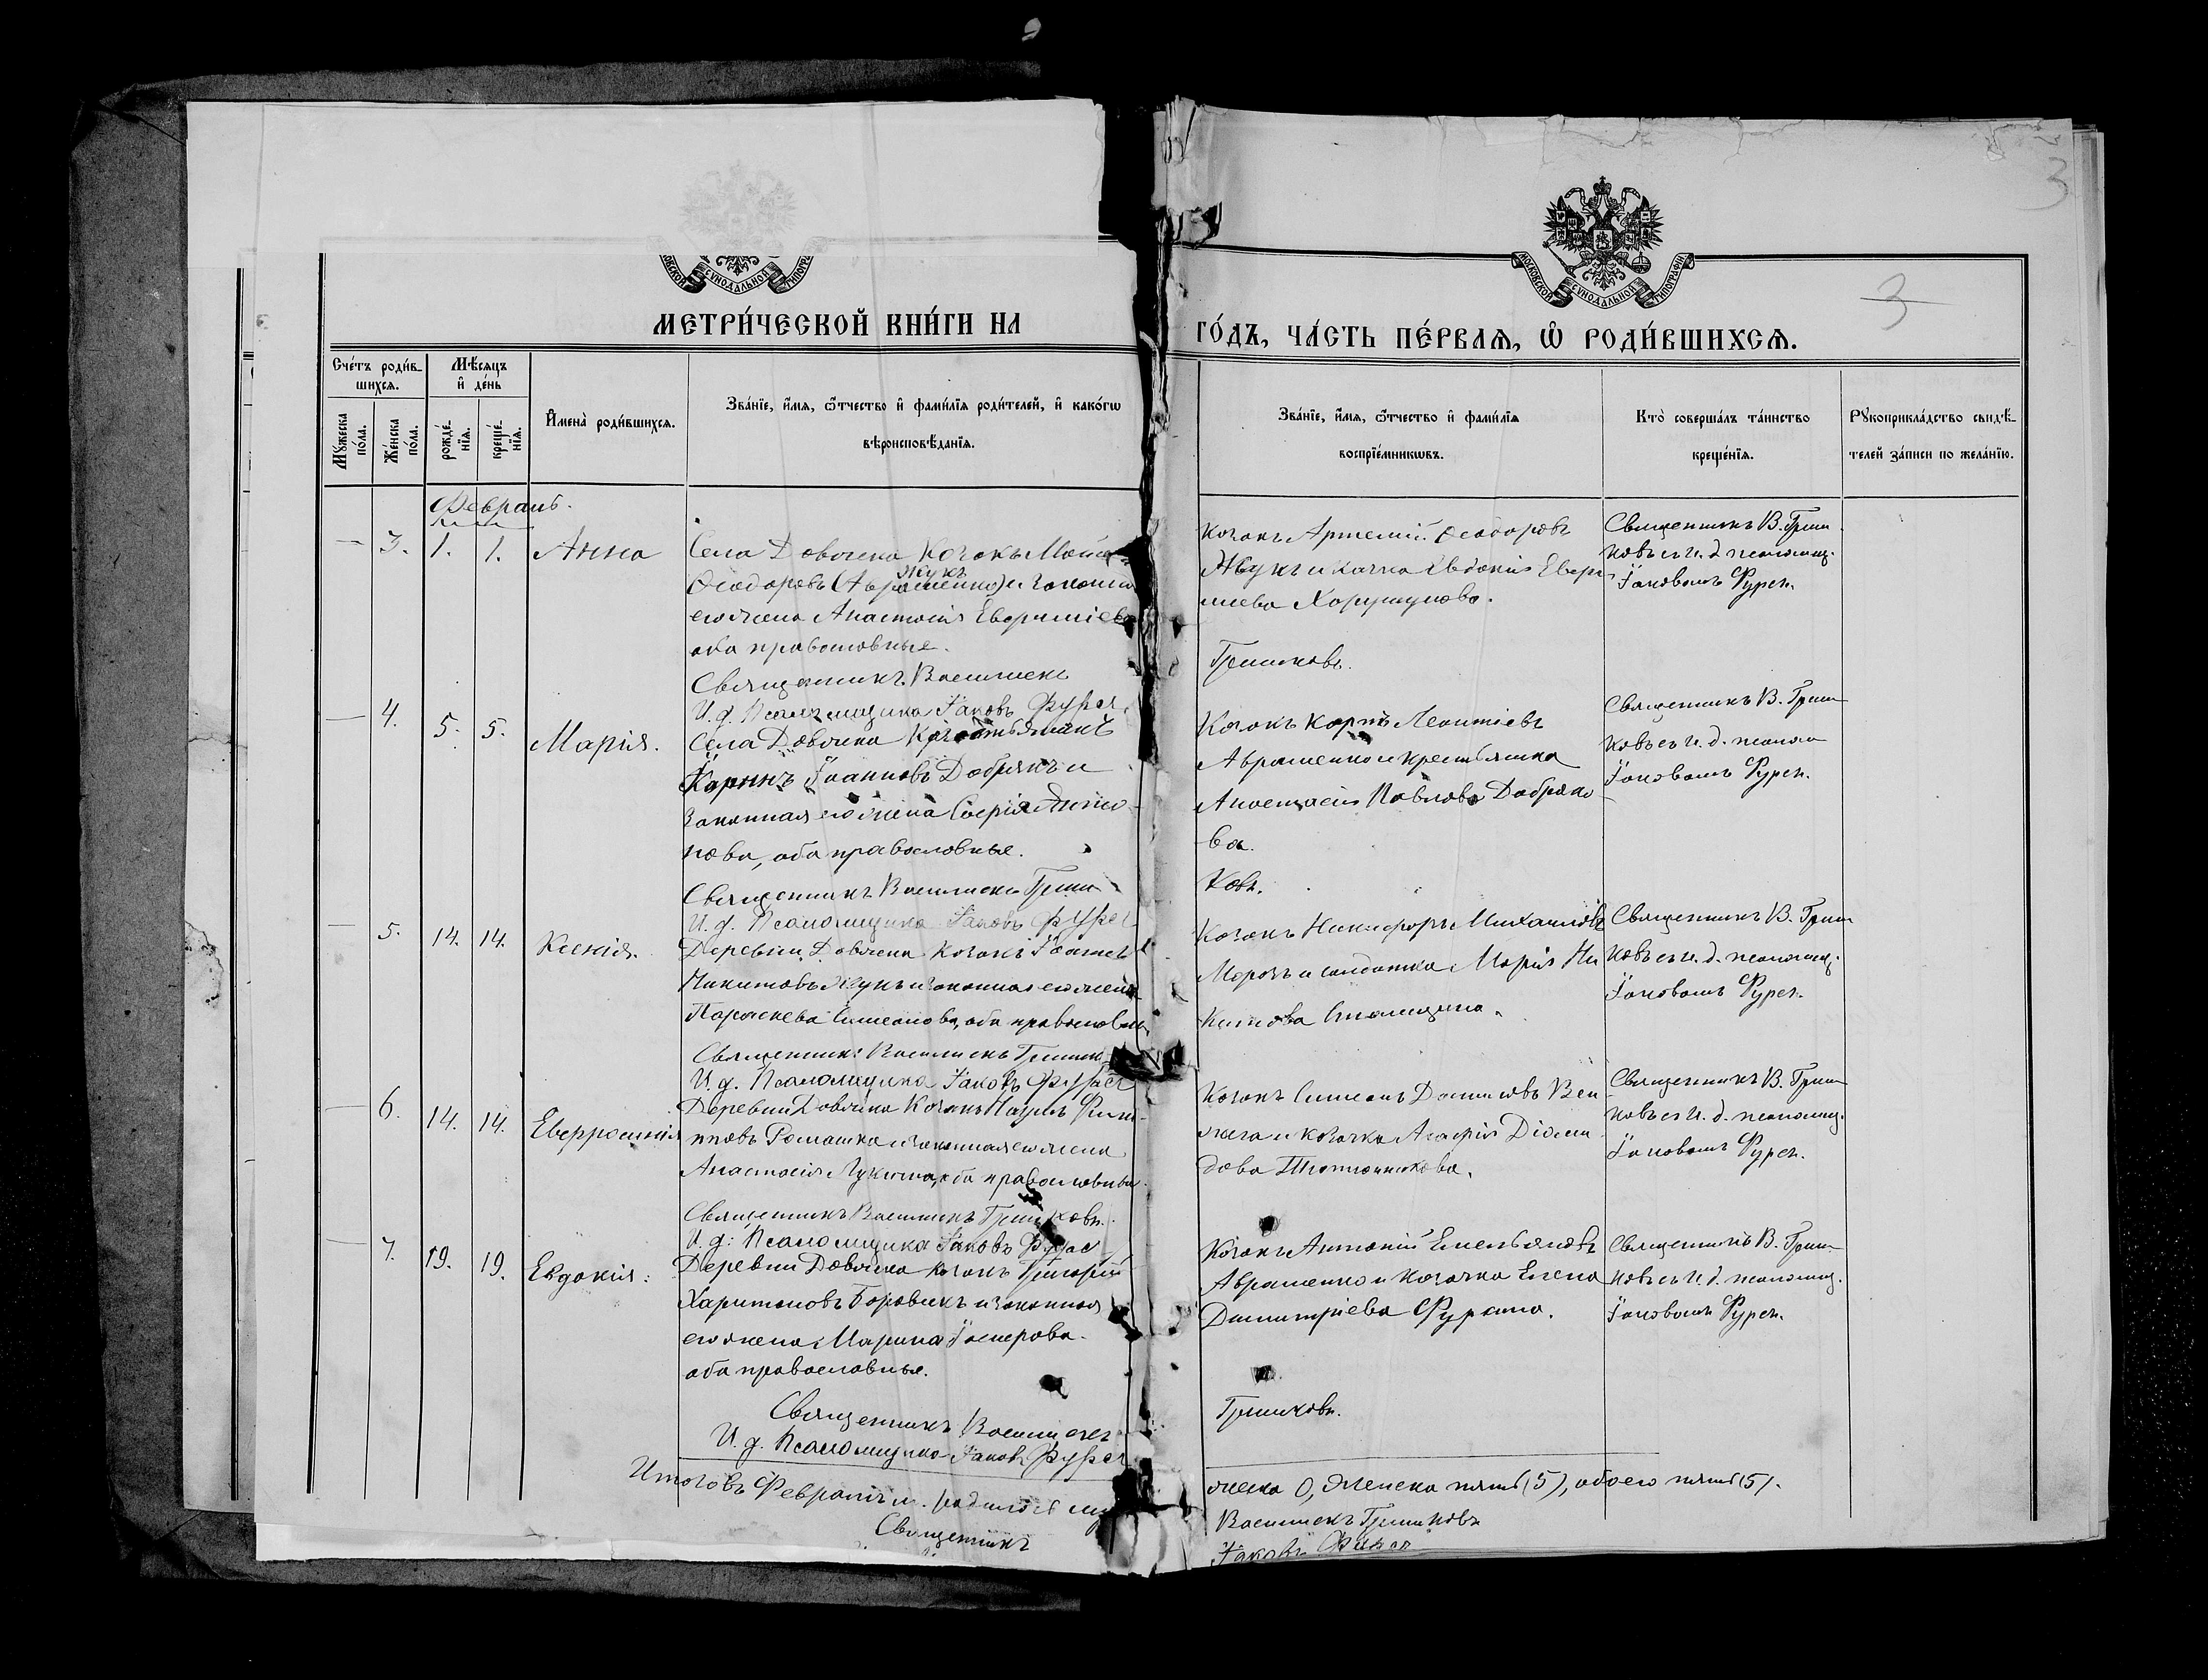 3
3
МОСКОВСКОЙ СУНОДАЛЬНОЙ ТИПОГРАФІИ
МЕТРИ́ЧЕСКОЙ КНИ́ГИ НА ГО́ДЪ, ЧА́СТЬ ПЕ́РВАЯ, Ѡ РОДИ́ВШИХСЯ.
Сче́тъ роди́в-
шихся.
Му́жеска по́ла.
Же́нска по́ла.
Мѣ́сяцъ и де́нь
рожде́-
нїя.
креще́-
нїя.
Имена̀ роди́вшихся.
Зва́нїе, и́мя, ѻ҆́тчество и фами́лїя роди́телей, и како́гѡ
вѣроисповѣ́данїя.
Зва́нїе, и́мя, ѻ҆́тчество и фами́лїя
воспрїе́мникѡвъ.
Кто̀ соверша́лъ та́инство
креще́нїя.
Рꙋкоприкла́дство свидѣ́-
телей за́писи по жела́нїю.
Февраль.
— 3. 1. 1. Анна
Села Довжека Козакъ
Жукъ
Ѳеодоровъ (Авраменко) и законная
его жена Анастасія Евфиміева
оба православные.
Священникъ Василискъ
И. д. Псаломщика Іаковъ Фурса
Козакъ Артемій Ѳеодоровъ
Жукъ и Евдокія
Гришковъ.
Священникъ В. Гриш
ковъ съ и. д. псаломщ.
Іаковомъ Фурс.
— 4. 5. 5. Марія.
Села Довжека
Іоанновъ Добрякъ и
Законная его жена Софія
нова, оба православные.
Священникъ Василискъ Гриш
И. д. Псаломщика Іаковъ Фурса
Козакъ Карпъ Леонтіевъ
Авраменко и крестьянка
Анастасія Павлова Добряко
ва.
ковъ.
Священникъ В. Гриш
ковъ съ и. д. псалом
Іаковомъ Фурс.
— 5. 14. 14. Ксенія.
Деревни Довжека Козакъ
Никитовъ Жукъ и законная его жена
Параскева Симеонова, оба православны
Священникъ Василискъ Гришк
И. д. Псаломщика Іаковъ Фурса
Козакъ Никифоръ Михаиловъ
Морозъ и солдатка Марія Ни
китова
Священникъ В. Гриш
ковъ съ и. д. псаломщ.
Іаковомъ Фурс.
— 6. 14. 14. Евфросинія
Деревни Довжека Козакъ Фили-
пповъ Ромашка и законная его жена
Анастасія Лукина, оба православные.
Священникъ Василискъ Гришковъ.
И. д. Псаломщика Іаковъ Фурса
Козакъ Симеонъ
и козачка Агафія Діоми
дова
Священникъ В. Гриш
ковъ съ и. д. псаломщ.
Іаковомъ Фурс.
— 7. 19. 19. Евдокія.
Деревни Довжека козакъ Григорій
Харитоновъ Боровикъ и законная
его жена Марина
оба православные.
Священникъ Василискъ
И. д. Псаломщика Іаковъ Фурса
Козакъ Антоній Емельяновъ
Авраменко и козачка Елена
Димитріева Фурсина.
Гришковъ.
Священникъ В. Гриш-
ковъ съ и. д. псаломщ.
Іаковомъ Фурс.
Итого въ Февралѣ м. родилось му
жеска 0, женска пять (5), обоего пять (5).
Священникъ Василискъ Гришковъ
Іаковъ Фурса